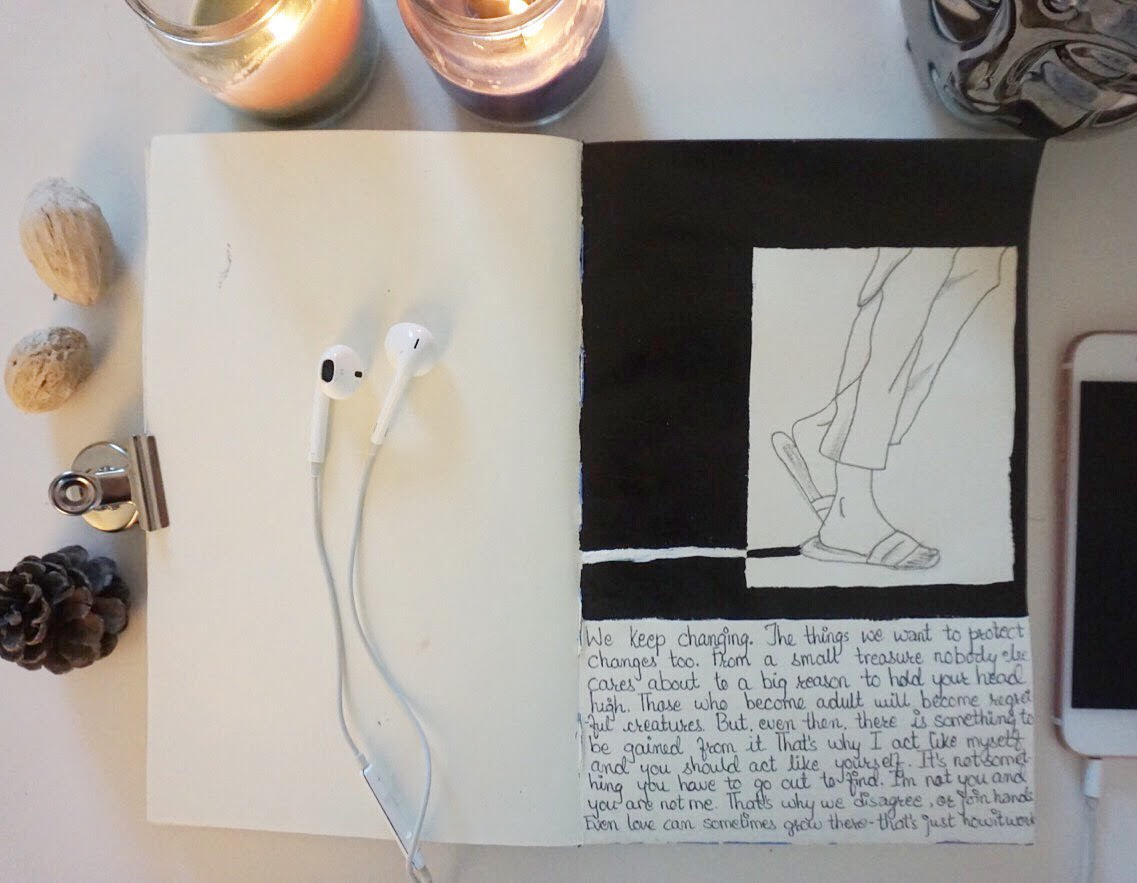 We keep changing. The things we want to protect
changes too. From a small treasure nobody else
cares about to a big reason to hold your head
high. Those who become adult will become regret
ful creatures. But, even then, there is something to
be gained from it. That's why I act like myself,
and you should act like yourself. It's not somet-
hing you have to go out to find. I'm not you and
you are not me. That's why we disagree, or join hands
Even love can sometimes grow there - that's just how it work